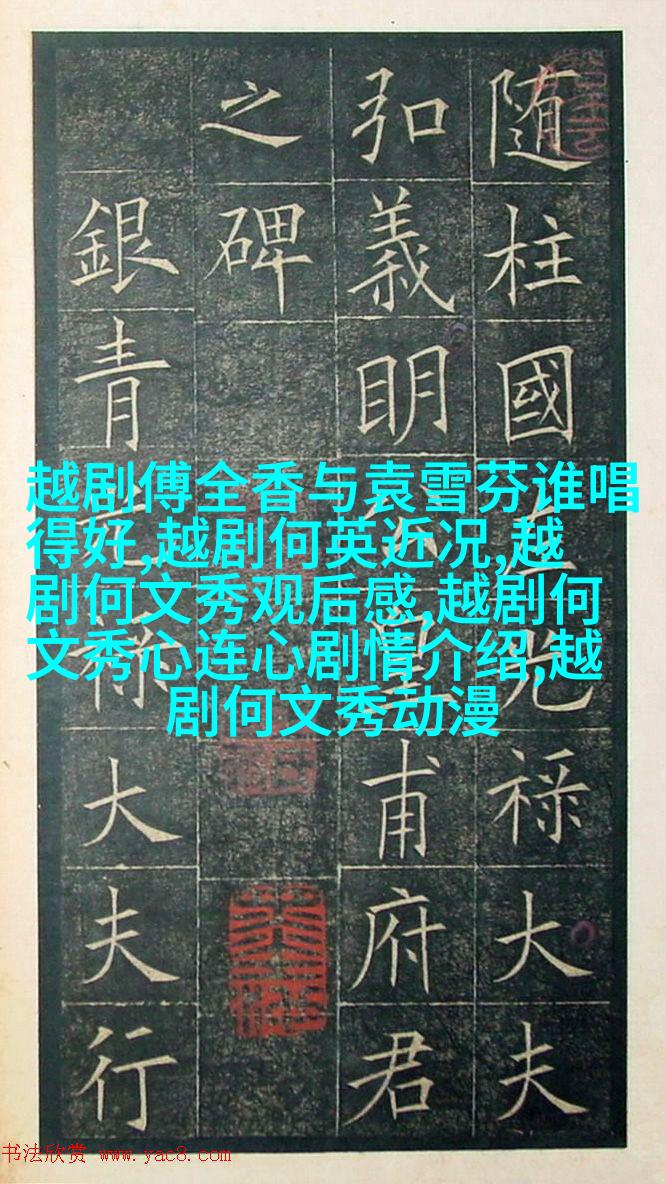 随柱國左光祿大夫
弘義明公皇甫府君
之碑
銀青光祿大夫行
越剧傅全香与袁雪芬谁唱
得好,越剧何英近况,越
剧何文秀观后感,越剧何
文秀心连心剧情介绍,越
剧何文秀动漫
书法欣赏 www.yac8.com